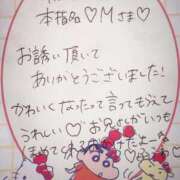 本指名♡Mさま♡
お誘い頂いて
ありがとうございました!
かわいくなったって言ってもらえて
うれしい♡お兄さんがいつも
ほめてくれる